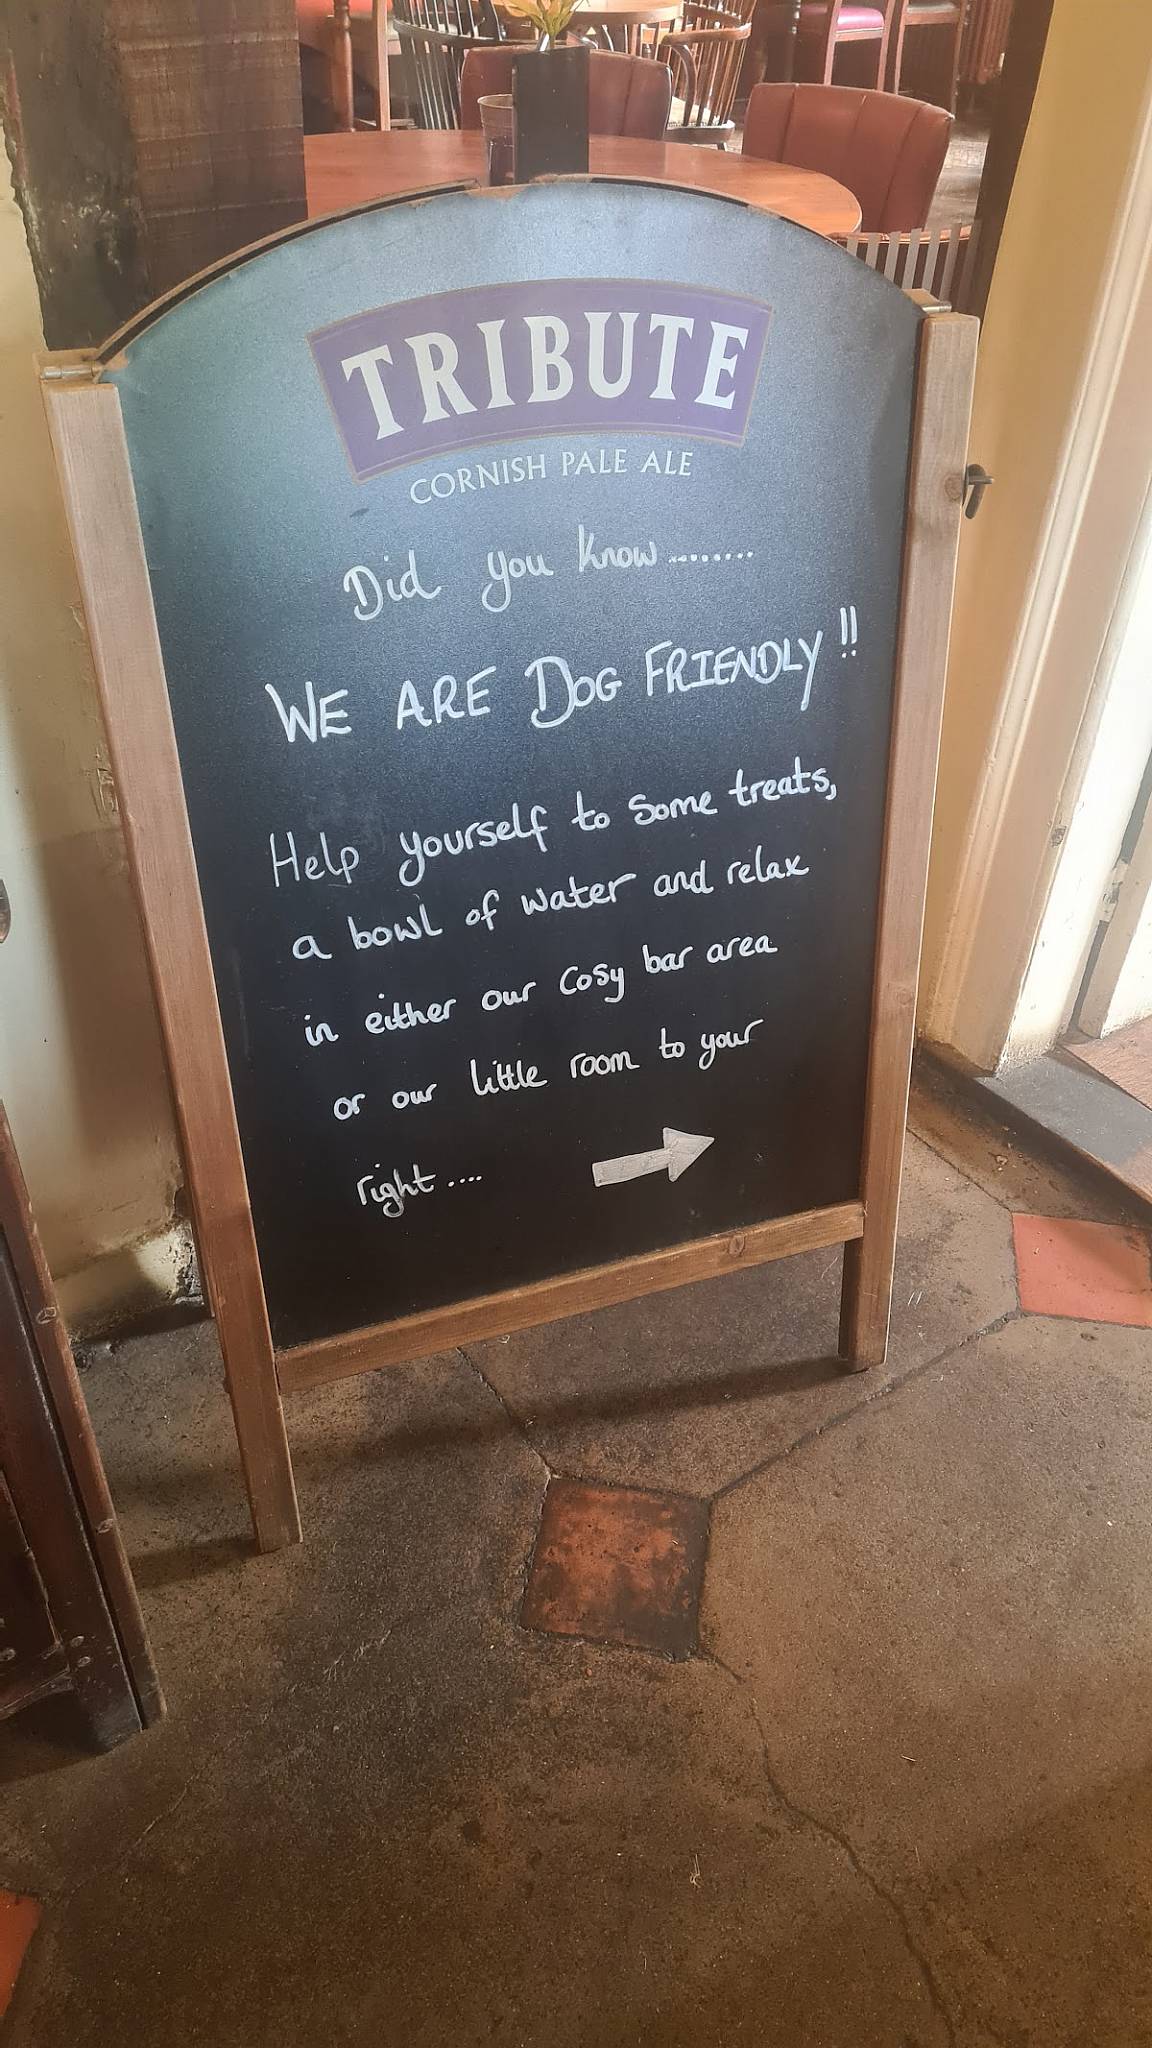 TRIBUTE
CORNISH PALE ALE
Did you know........
WE ARE DOG FRIENDLY!!
Help yourself to some treats,
a bowl of water and relax
in either our cosy bar area
or our little room to your
right....